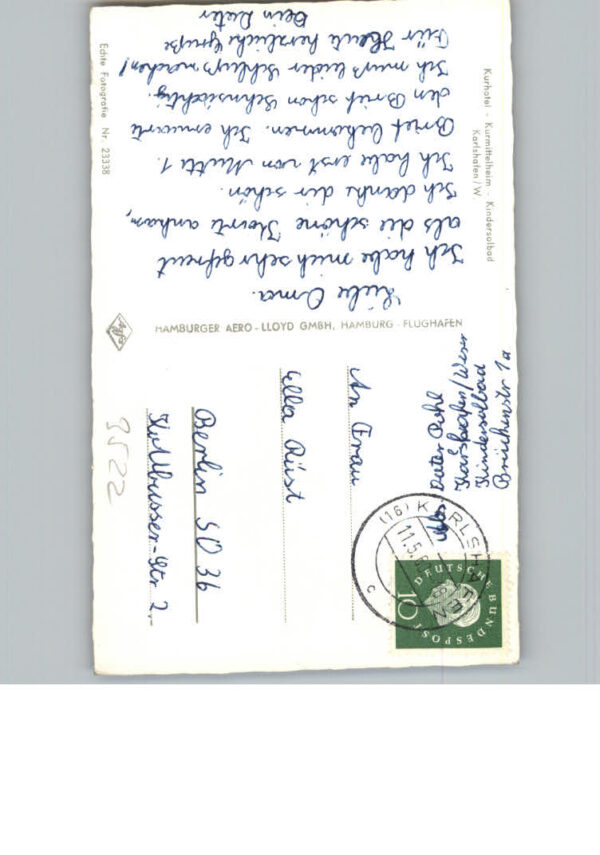 Kurhotel - Kurmittelheim - Kindersolbad
Karlshafen/W
Liebe Oma.
Ich habe mich sehr gefreut
als die schöne Karte ankam,
Ich danke dir schön.
Ich habe erst von Mutti 1.
Brief bekommen. Ich erwarte
den Brief schon sehnsüchtig.
Ich muß leider Schluß machen!
Für Heute herzliche Grüße
Dein Dieter
Echte Fotografie Nr. 23338
HAMBURGER AERO-LLOYD GMBH, HAMBURG-FLUGHAFEN
Agfa
Abs. Dieter Pohl
Karlshafen/Weser
Kindersolbad
Brückenstr 1a
An Frau
Ella Rüst
Berlin SO 36
Kottbusser-Str 2.
3522
(16) KARLSHAFEN
11.5.
c
DEUTSCHE BUNDESPOST
10